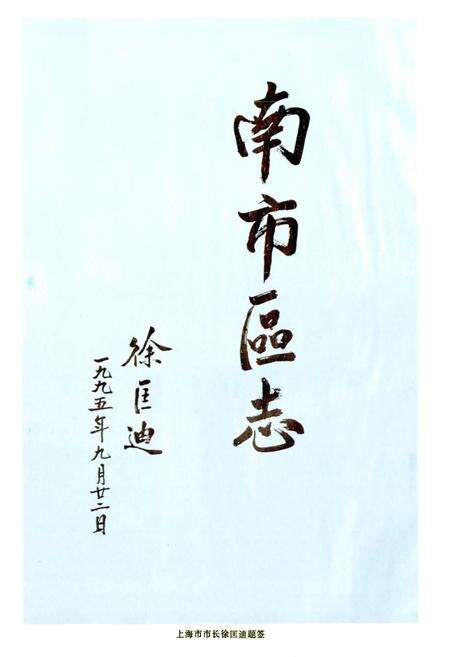 南市區志
徐匡迪
一九九五年九月廿二日
上海市市长徐匡迪题签